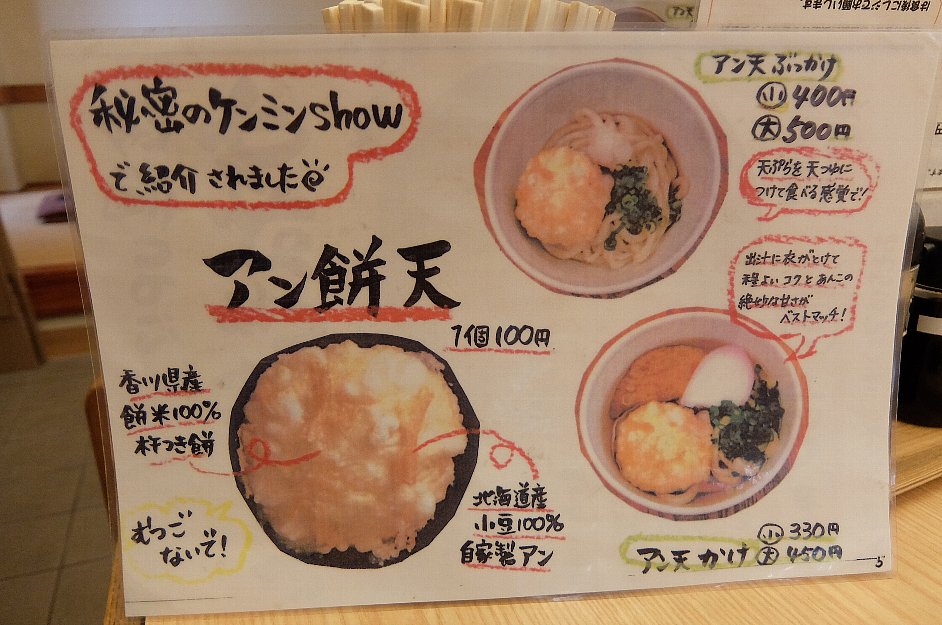 は食後にレジでお願いします。
アン天
秘密のケンミンshow
で紹介されました
アン餅天
1個100円
香川県産
餅米100%
杵つき餅
むつご
ないで!
北海道産
小豆100%
自家製アン
アン天ぶっかけ
小 400円
大 500円
天ぷらを天つゆに
つけて食べる感覚で!
出汁に衣がとけて
程よいコクとあんこの
絶妙な甘さが
ベストマッチ!
アン天かけ
小 330円
大 450円
5